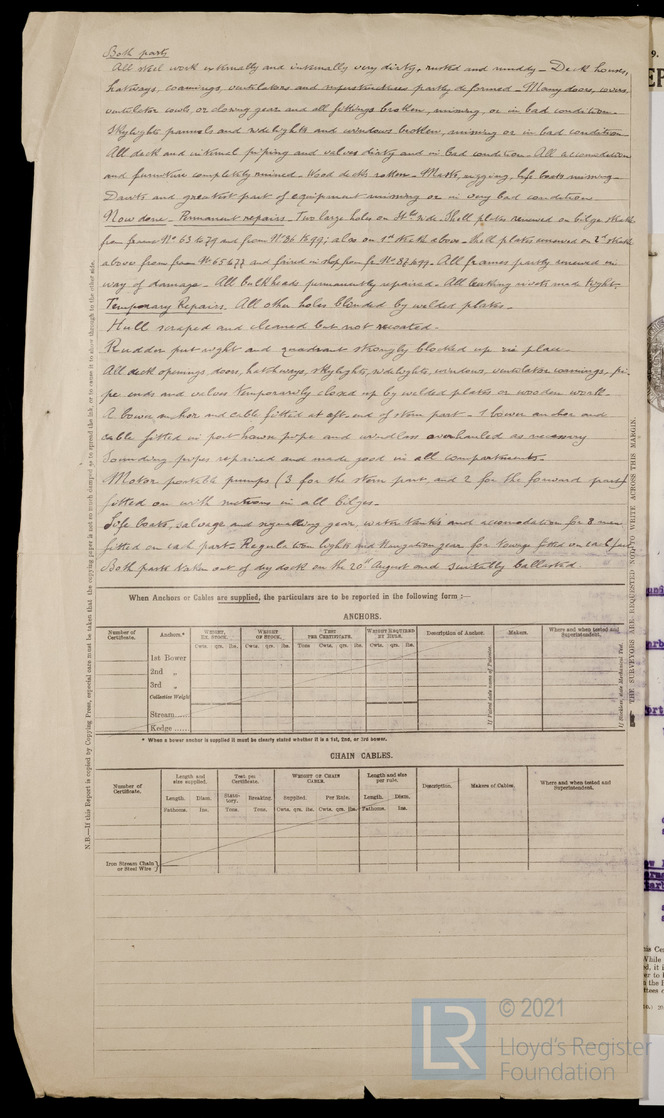 Both parts
All steel work externally and internally very dirty, rusted and muddy - Deck houses,
hatways, coamings, ventilators and superstructures partly deformed - Many doors, covers,
ventilator cowls, or closing gear and all fittings broken, missing, or in bad condition -
Skylights pannels and sidelights and windows broken, missing or in bad condition -
All deck and internal piping and valves dirty and in bad condition - All accomodation
and furniture completely ruined - Wood decks rotten - Masts, rigging, life boats missing -
Davits and greatest part of equipment missing or in very bad condition -
Now done - Permanent repairs - Two large holes on side. Shell plates renewed on bilge strake
from frame No 63 to 79 and from No 86 to 99; also on 1st strake above - Shell plates renewed on 2d strake
above from frame No 65 to 77 and faired in shop from fr. No 87 to 99 - All frames partly renewed in
way of damage - All bulkheads permanently repaired - All leaking rivets made tight -
Temporary Repairs. All other holes blended by welded plates -
Hull scraped and cleaned but not recoated -
Rudder put right and quadrant strongly blocked up in place -
All deck openings, doors, hatchways, skylights, sidelights, windows, ventilator coamings, pi-
pe ends and valves temporarily closed up by welded plates or wooden
A bower anchor and cable fitted at aft end of stern part - 1 bower anchor and
cable fitted in port hawse pipe and windlass overhauled as necessary
Sounding pipes repaired and made good in all compartments -
Motor portable pumps (3 for the stern part and 2 for the forward part)
fitted on with suctions in all bilges -
Life boats, salvage and signalling gear, water tanks and accomodation for 8 men
fitted on each part - Regulation lights and Navigation gear for towage fitted on each part
Both parts taken out of dry dock on the 20th August and suitably ballasted.
When Anchors or Cables are supplied, the particulars are to be reported in the following form :—
ANCHORS.
Number of Certificate.
Anchors.*
WEIGHT, EX. STOCK.
WEIGHT OF STOCK.
TEST PER CERTIFICATE.
WEIGHT REQUIRED BY RULE.
Description of Anchor.
Makers.
Where and when tested and Superintendent.
Cwts. qrs. lbs.
Cwts. qrs. lbs.
Tons Cwts. qrs. lbs.
Cwts. qrs. lbs.
1st Bower
2nd „
3rd „
Collective Weight
Stream......
Kedge ......
* When a bower anchor is supplied it must be clearly stated whether it is a 1st, 2nd, or 3rd bower.
CHAIN CABLES.
Number of Certificate.
Length and size supplied.
Test per Certificate.
WEIGHT OF CHAIN CABLE.
Length and size per rule.
Description.
Makers of Cables.
Where and when tested and Superintendent.
Length. Diam.
Statutory. Breaking.
Supplied. Per Rule.
Length. Diam.
Fathoms. Ins.
Tons. Tons.
Cwts. qrs. lbs. Cwts. qrs. lbs.
Fathoms. Ins.
Iron Stream Chain or Steel Wire }
N.B.—If this Report is copied by Copying Press, especial care must be taken that the copying paper is not so much damped as to spread the ink, or to cause it to show through to the other side.
THE SURVEYORS ARE REQUESTED NOT TO WRITE ACROSS THIS MARGIN.
LR
© 2021
Lloyd's Register
Foundation